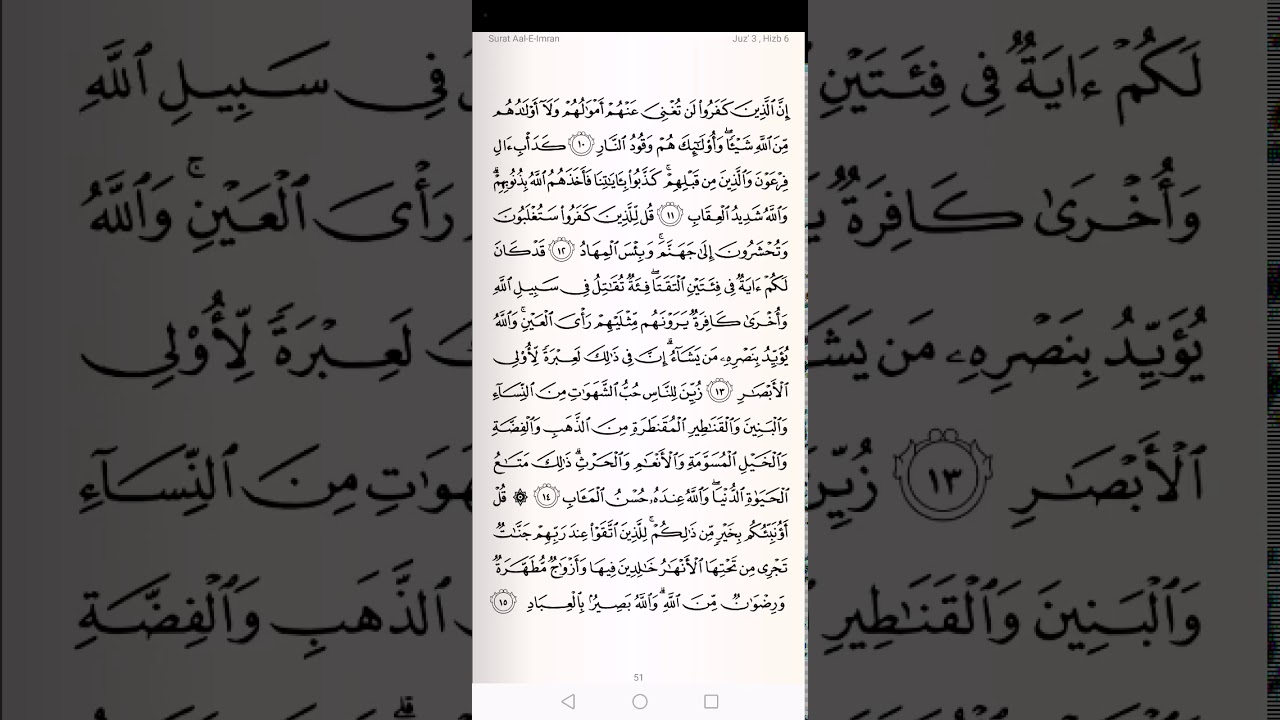 Surat Aal-E-Imran
Juz' 3 , Hizb 6
إِنَّ ٱلَّذِينَ كَفَرُوا۟ لَن تُغْنِىَ عَنْهُمْ أَمْوَٰلُهُمْ وَلَآ أَوْلَٰدُهُم
مِّنَ ٱللَّهِ شَيْـًٔا ۖ وَأُو۟لَٰٓئِكَ هُمْ وَقُودُ ٱلنَّارِ ١٠ كَدَأْبِ ءَالِ
فِرْعَوْنَ وَٱلَّذِينَ مِن قَبْلِهِمْ ۚ كَذَّبُوا۟ بِـَٔايَٰتِنَا فَأَخَذَهُمُ ٱللَّهُ بِذُنُوبِهِمْ ۗ
وَٱللَّهُ شَدِيدُ ٱلْعِقَابِ ١١ قُل لِّلَّذِينَ كَفَرُوا۟ سَتُغْلَبُونَ
وَتُحْشَرُونَ إِلَىٰ جَهَنَّمَ ۚ وَبِئْسَ ٱلْمِهَادُ ١٢ قَدْ كَانَ
لَكُمْ ءَايَةٌ فِى فِئَتَيْنِ ٱلْتَقَتَا ۖ فِئَةٌ تُقَٰتِلُ فِى سَبِيلِ ٱللَّهِ
وَأُخْرَىٰ كَافِرَةٌ يَرَوْنَهُم مِّثْلَيْهِمْ رَأْىَ ٱلْعَيْنِ ۚ وَٱللَّهُ
يُؤَيِّدُ بِنَصْرِهِۦ مَن يَشَآءُ ۗ إِنَّ فِى ذَٰلِكَ لَعِبْرَةً لِّأُو۟لِى
ٱلْأَبْصَٰرِ ١٣ زُيِّنَ لِلنَّاسِ حُبُّ ٱلشَّهَوَٰتِ مِنَ ٱلنِّسَآءِ
وَٱلْبَنِينَ وَٱلْقَنَٰطِيرِ ٱلْمُقَنطَرَةِ مِنَ ٱلذَّهَبِ وَٱلْفِضَّةِ
وَٱلْخَيْلِ ٱلْمُسَوَّمَةِ وَٱلْأَنْعَٰمِ وَٱلْحَرْثِ ۗ ذَٰلِكَ مَتَٰعُ
ٱلْحَيَوٰةِ ٱلدُّنْيَا ۖ وَٱللَّهُ عِندَهُۥ حُسْنُ ٱلْمَـَٔابِ ١٤ ۞ قُلْ
أَؤُنَبِّئُكُم بِخَيْرٍ مِّن ذَٰلِكُمْ ۚ لِلَّذِينَ ٱتَّقَوْا۟ عِندَ رَبِّهِمْ جَنَّٰتٌ
تَجْرِى مِن تَحْتِهَا ٱلْأَنْهَٰرُ خَٰلِدِينَ فِيهَا وَأَزْوَٰجٌ مُّطَهَّرَةٌ
وَرِضْوَٰنٌ مِّنَ ٱللَّهِ ۗ وَٱللَّهُ بَصِيرٌۢ بِٱلْعِبَادِ ١٥
51
لَكُمْ ءَايَةٌ فِى فِئَتَيْنِ فِى سَبِيلِ ٱللَّهِ
وَأُخْرَىٰ كَافِرَةٌ رَأْىَ ٱلْعَيْنِ ۚ وَٱللَّهُ
يُؤَيِّدُ بِنَصْرِهِۦ مَن لَعِبْرَةً لِّأُو۟لِى
ٱلْأَبْصَٰرِ ١٣ مِنَ ٱلنِّسَآءِ
وَٱلْبَنِينَ وَٱلْقَنَٰطِيرِ ٱلذَّهَبِ وَٱلْفِضَّةِ